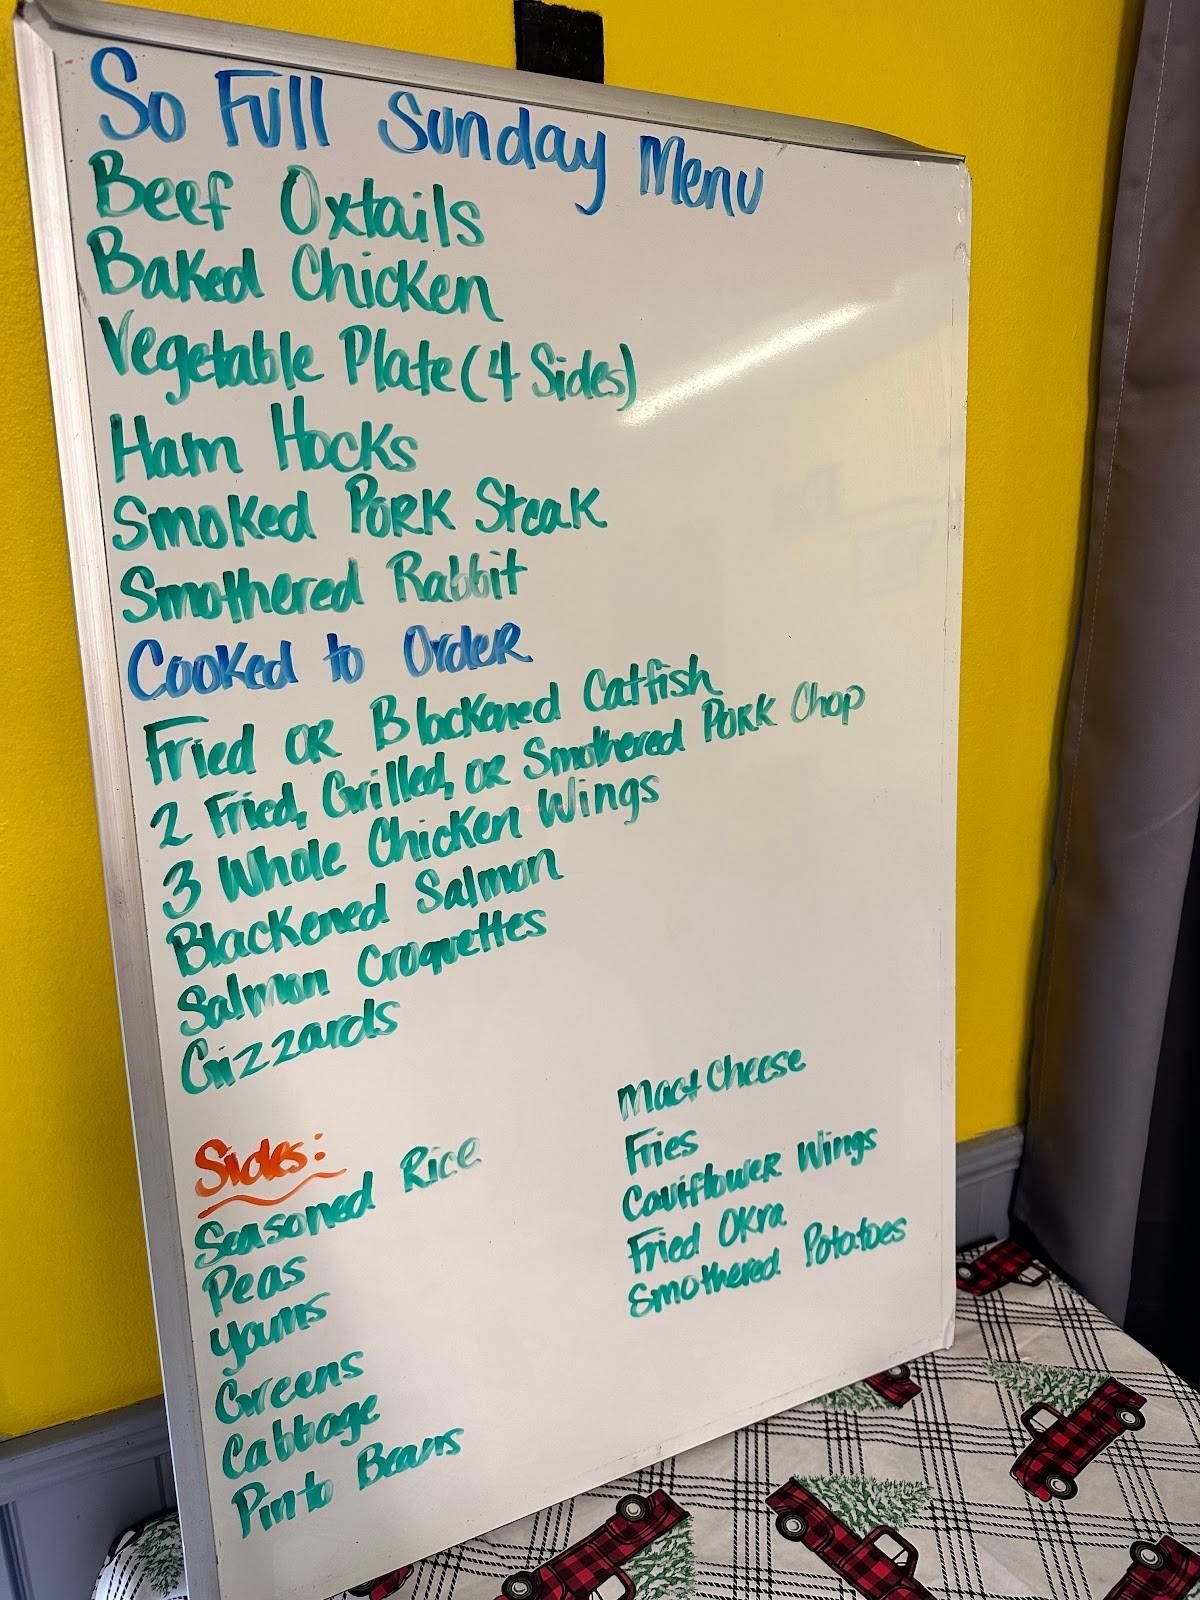 So Full Sunday Menu
Beef Oxtails
Baked Chicken
Vegetable Plate (4 Sides)
Ham Hocks
Smoked Pork Steak
Smothered Rabbit
Cooked to Order
Fried or Blackened Catfish
2 Fried, Grilled, or Smothered Pork Chop
3 Whole Chicken Wings
Blackened Salmon
Salmon Croquettes
Gizzards
Sides:
Seasoned Rice
Peas
Yams
Greens
Cabbage
Pinto Beans
Mac+Cheese
Fries
Cauiflower Wings
Fried Okra
Smothered Potatoes